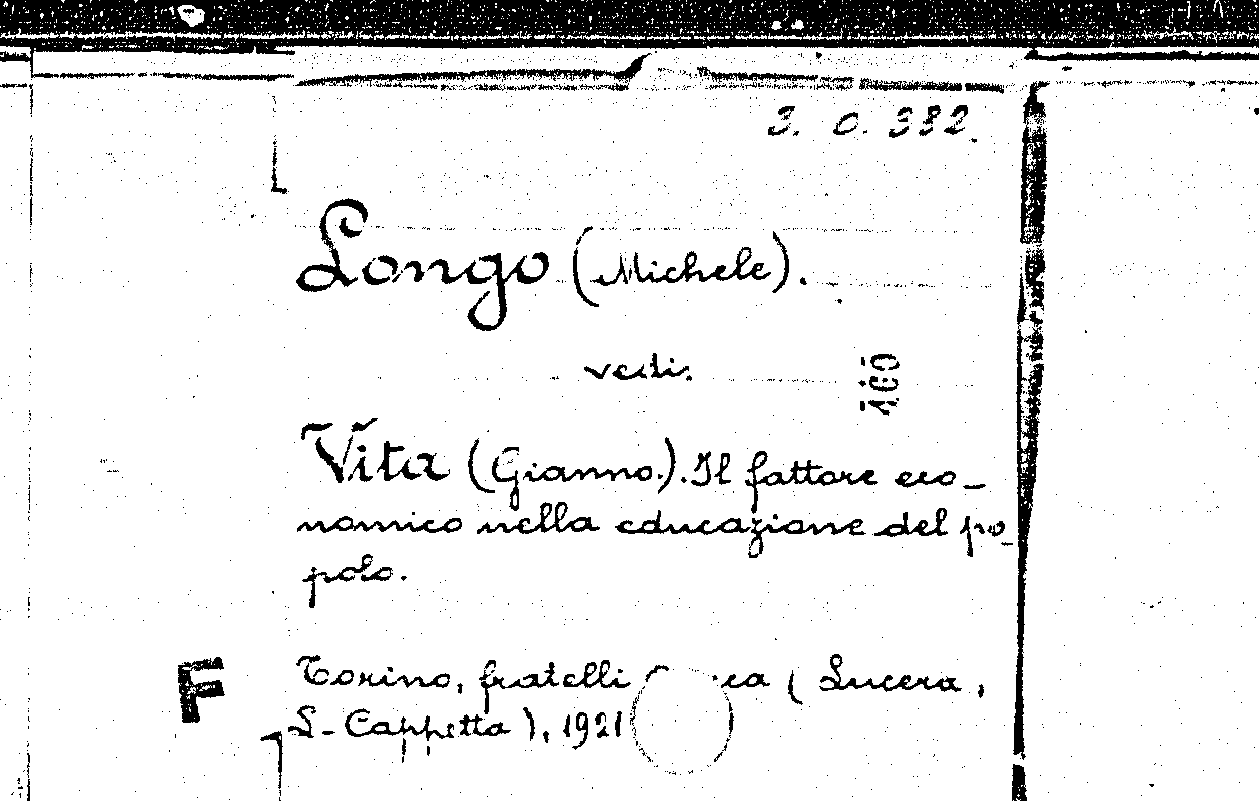 3. O. 382.
Longo (Michele).
vedi:
160
Vita (Gianno.). Il fattore eco-
nomico nella educazione del po-
polo.
F
Torino, fratelli ( Lucera,
L. Cappetta ), 1921